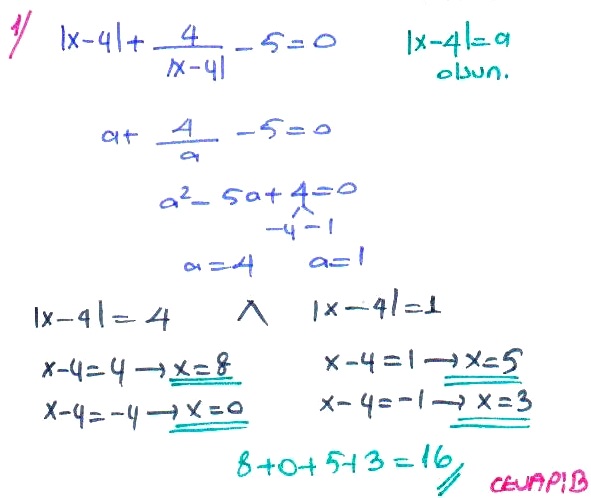 1/ |x-4| + 4/|x-4| - 5 = 0 |x-4| = a
olsun.
a + 4/a - 5 = 0
a² - 5a + 4 = 0
-4 -1
a = 4 a = 1
|x-4| = 4 ∧ |x-4| = 1
x-4 = 4 → x = 8 x-4 = 1 → x = 5
x-4 = -4 → x = 0 x-4 = -1 → x = 3
8+0+5+3 = 16 //
CEVAP: B